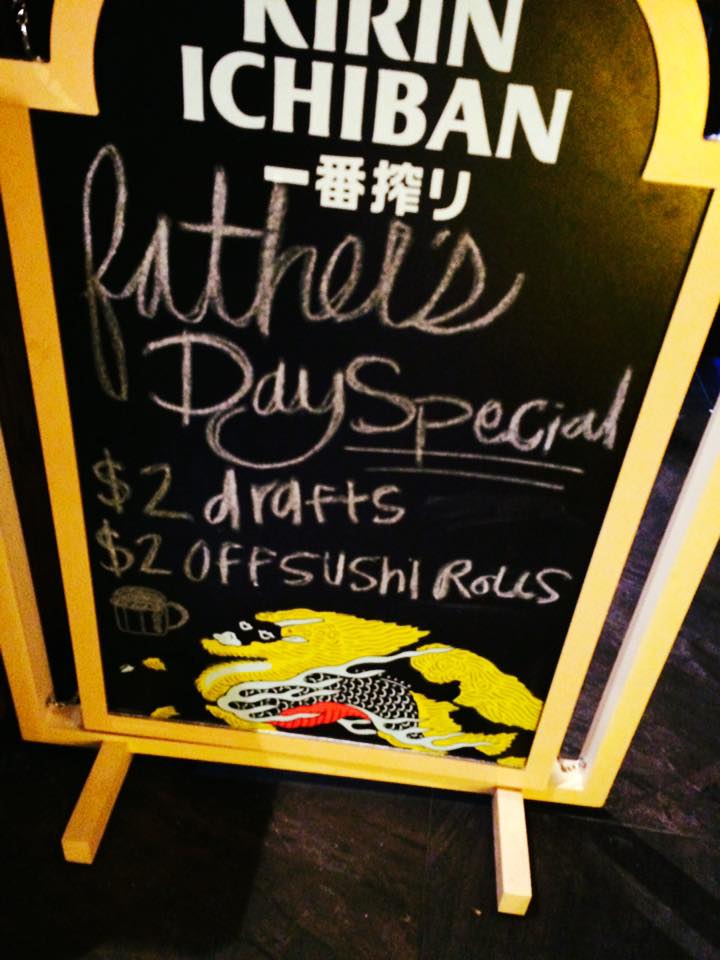 KIRIN
ICHIBAN
一番搾り
father's
Day Special
$2 drafts
$2 OFF SUSHI ROLLS